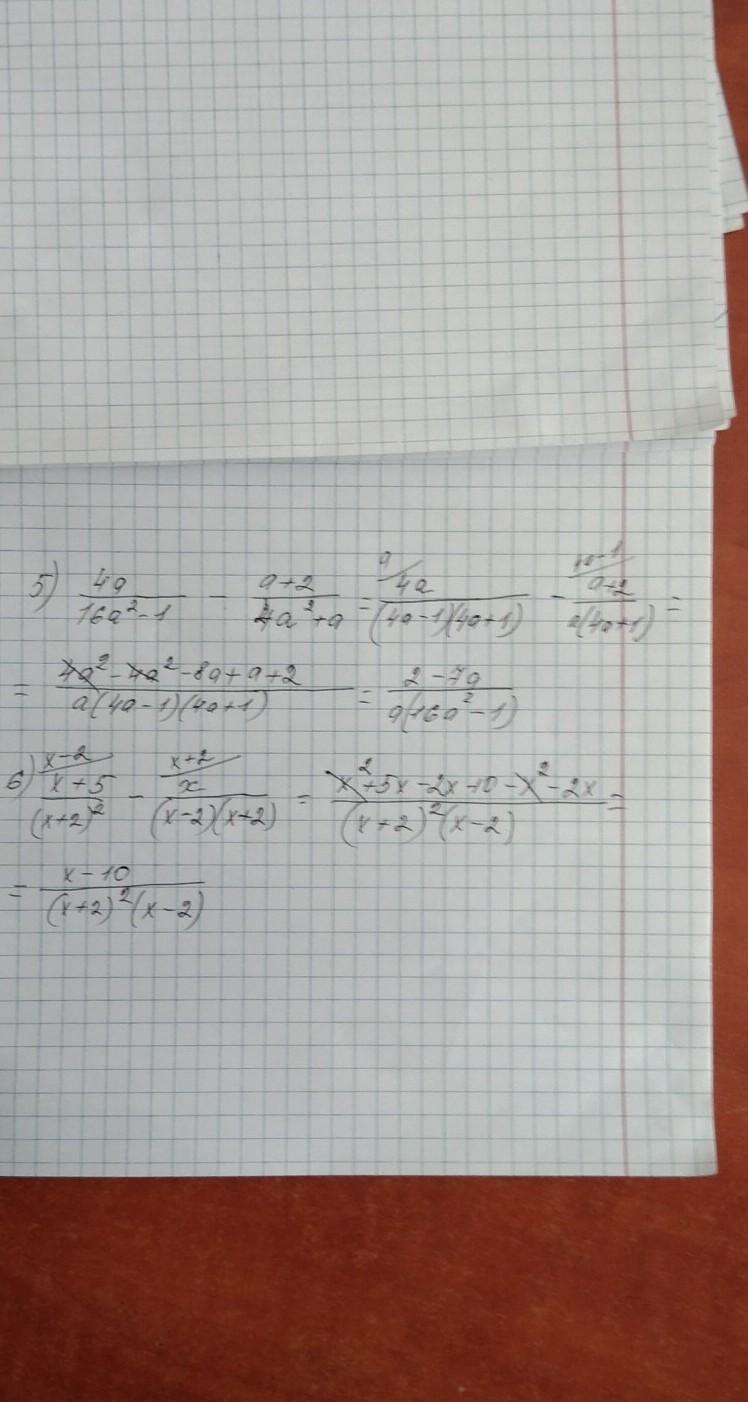 5) \frac{4a}{16a^2-1} - \frac{a+2}{4a^2+a} = \frac{4a}{(4a-1)(4a+1)}^{a/} - \frac{a+2}{a(4a+1)}^{4a-1/} =
= \frac{4a^2-4a^2-8a+a+2}{a(4a-1)(4a+1)} = \frac{2-7a}{a(16a^2-1)}
6) \frac{x+5}{(x+2)^2}^{x-2/} - \frac{x}{(x-2)(x+2)}^{x+2/} = \frac{x^2+5x-2x-10-x^2-2x}{(x+2)^2(x-2)} =
= \frac{x-10}{(x+2)^2(x-2)}